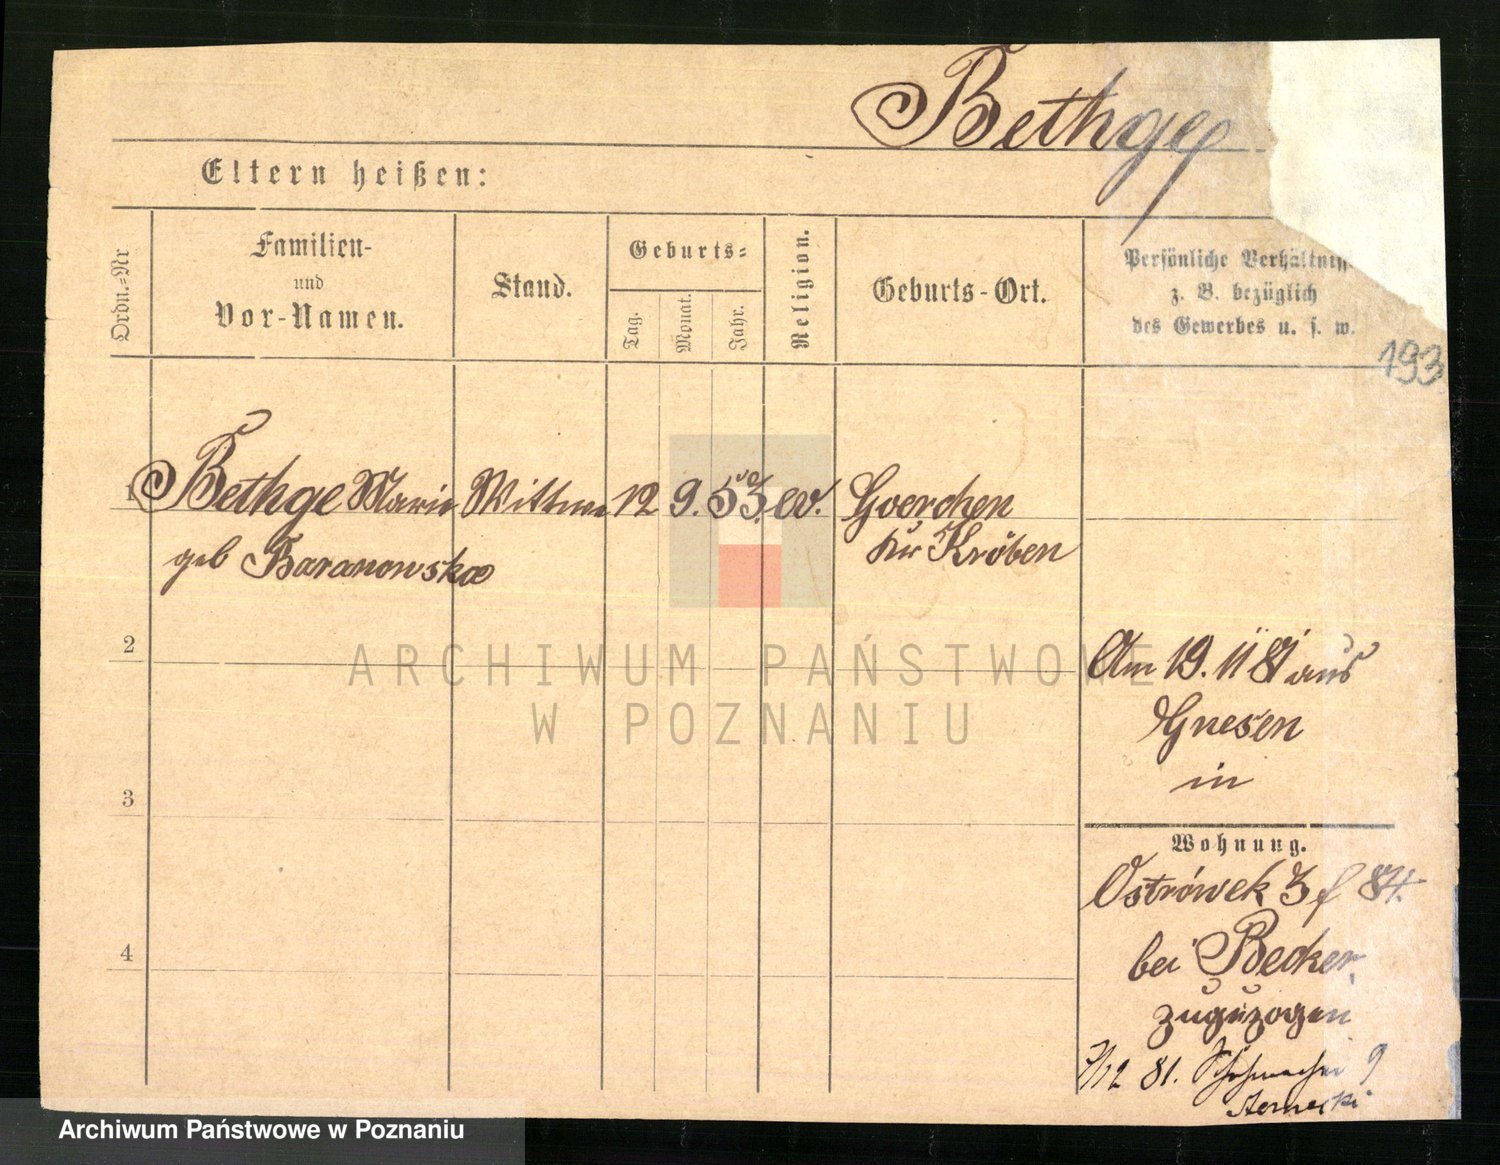 Bethge
Eltern heißen:
Ordn.=Nr
Familien-
und
Vor-Namen.
Stand.
Geburts=
Tag.
Monat.
Jahr.
Religion.
Geburts-Ort.
Persönliche Verhältniss
z. B. bezüglich
des Gewerbes u. s. w.
193
1 Bethge Marie Wittwe 12 9. 53 ev. Goerchen
geb Baranowska Kr Kröben
2
Am 19. 11 81 aus
Gnesen
in
3
Wohnung.
Ostrówek 3 f 84.
4
bei Becker
zugezogen
7/12 81. 9
ARCHIWUM PAŃSTWOWE
W POZNANIU
Archiwum Państwowe w Poznaniu